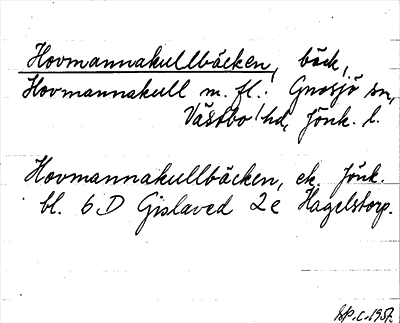 Hovmannakullbäcken, bäck,
Hovmannakull m. fl.: Gnosjö sn,
Västbo hd, Jönk. l.
Hovmannakullbäcken, ek. Jönk.
bl. 6 D Gislaved 2 e Hagelstorp.
1957.